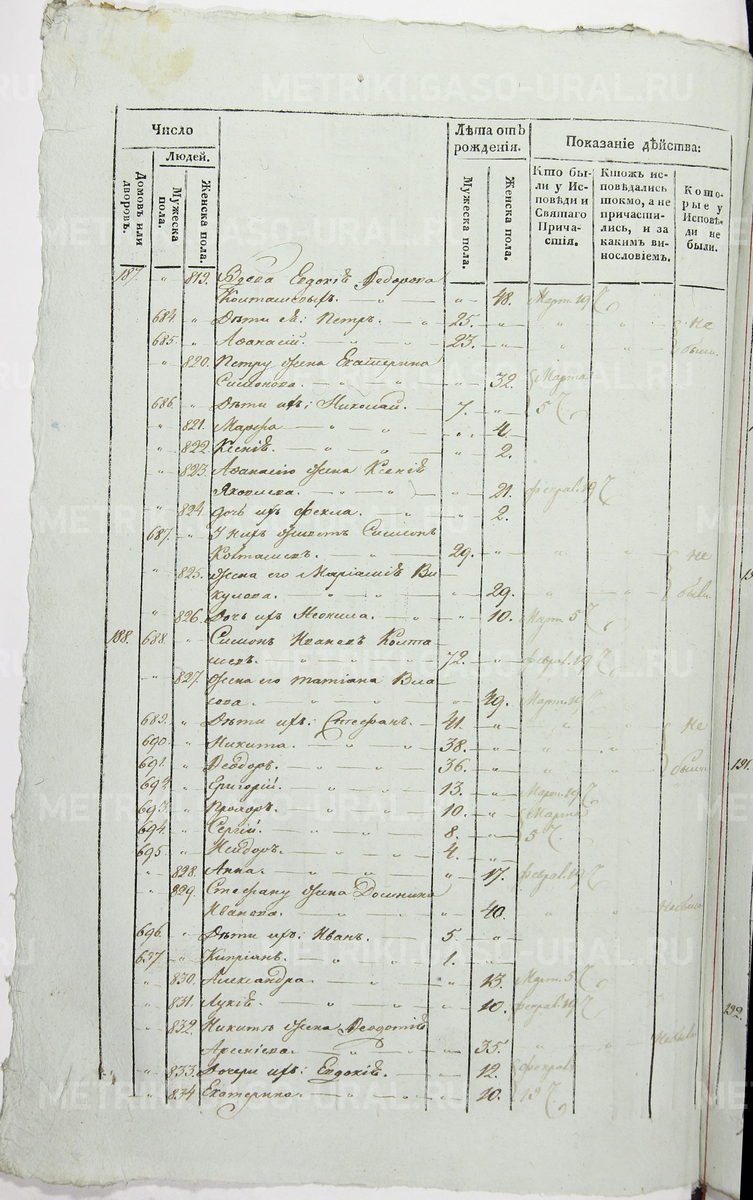 Число
Людей.
Домовъ или дворовъ.
Мужеска пола.
Женска пола.
Лѣта отъ рожденія.
Мужеска пола.
Женска пола.
Показаніе дѣйства:
Кто были у Исповѣди и Святаго Причастія.
Ктожъ исповѣдались токмо, а не причастились, и за какимъ винословіемъ.
Которые у Исповѣди не были.
187. " 819. Вдова Евдокія Ѳеодорова
Колташовыхъ. " 48. Март. 19
684. " Дѣти ея: Петръ. 25. " Не
685. " Аѳанасій. 23. " были
" 820. Петру жена Екатерина
Симонова. " 32. Марта
686. " Дѣти ихъ: Николай. 7. " 5
" 821. Марѳа " 4.
" 822. Ксенія. " 2.
" 823. Аѳанасію жена Ксенія
Яковлева. " 21. феврал. 19
" 824. дочь ихъ Ѳекла. " 2.
687. " У нихъ живетъ Симонъ
Колташевъ. 29. " Не
" 825. жена его Маріамія Ви
кулова. " 29. были
" 826. Дочь ихъ Неонила. " 10. Март. 5
188. 688. " Симонъ Ивановъ Колта
шевъ. 72. " феврал. 19
" 827. жена его татіана Вла
сова. " 49. Март.
689. " Дѣти ихъ: Стефанъ. 41. " Не
690. " Никита. 38. "
691. " Ѳеодоръ. 36. " были
692. " Григорій. 13. " Март. 19
693. " Прохоръ. 10. " Марта
694. " Сергій. 8. " 5
695. " Исидоръ. 4. "
" 828. Анна. " 17. феврал. 19
" 829. Стефану жена Домника
Иванова. " 40. Не были
696. " Дѣти ихъ: Иванъ. 5. "
697. " Кипріанъ. 1. "
" 830. Александра " 13. Март. 5
" 831. Лукія. " 10. феврал. 19
" 832. Никитѣ жена Ѳеодотія
Арсеніева. " 35. Не были
" 833. Дочери ихъ: Евдокія. " 12. феврал.
" 834 Екатерина. " 10. 19
191.
192.
METRIKI.GASO-URAL.RU